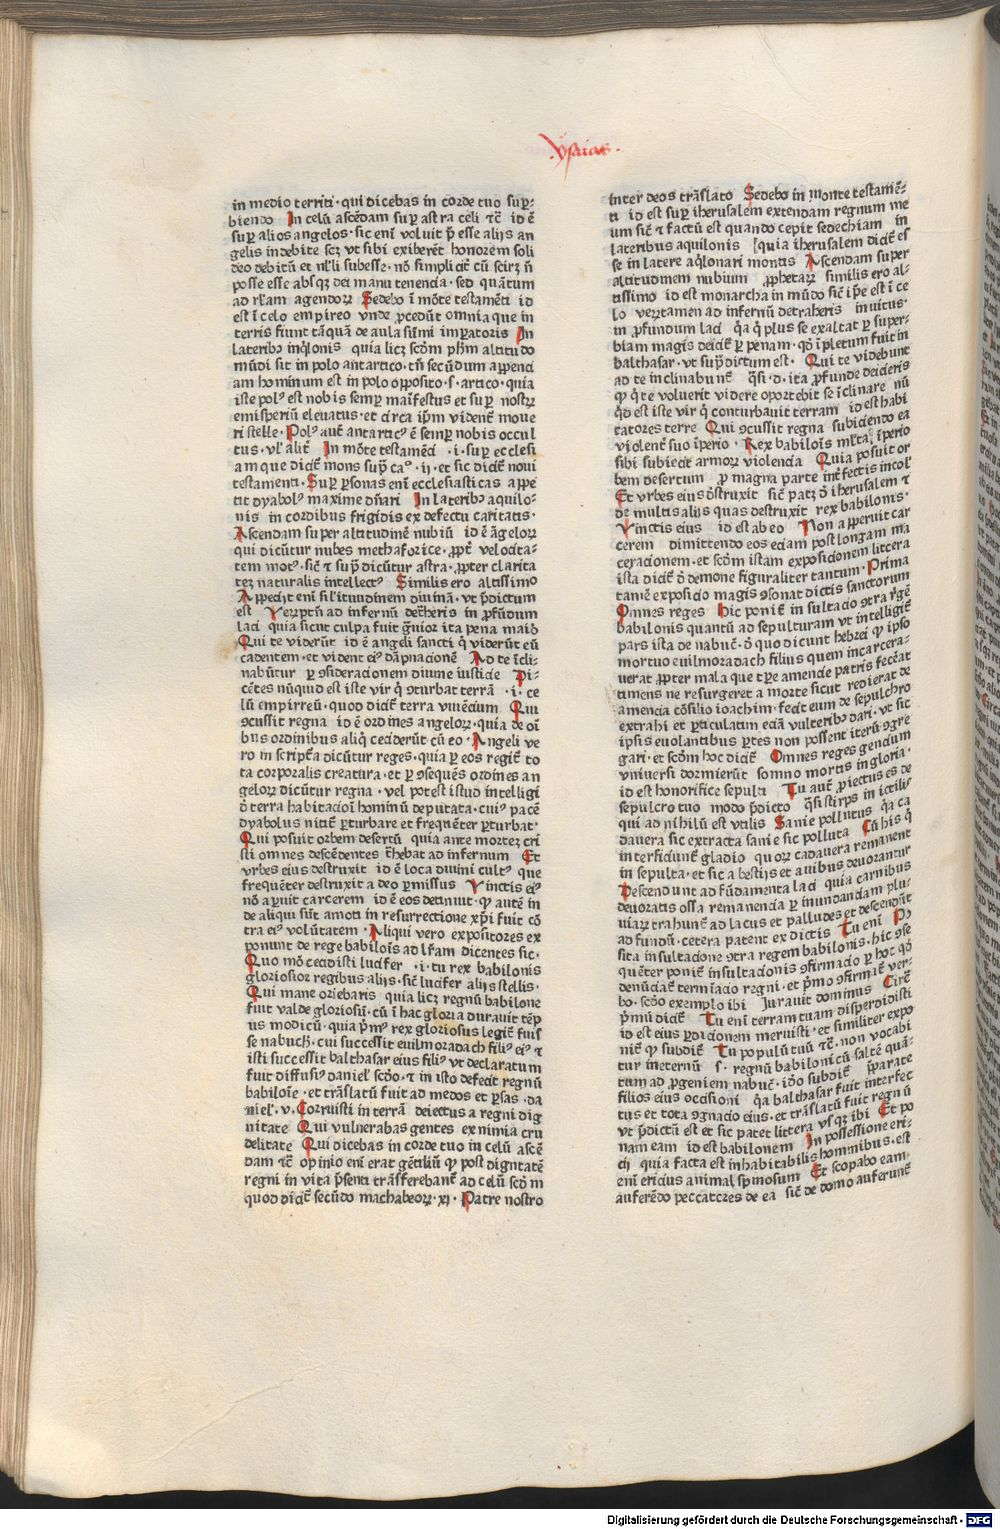 .ysaias.
in medio territi · qui dicebas in corde tuo suꝑ-
biendo In celū ascēdam suꝑ astra celi ⁊c̄ id ē
suꝑ alios angelos · sic enī voluit p̄ esse alijs an
gelis indebite scꝫ vt sibi exiberet̄ honorem soli
deo debitū et nl̄li subesse · nō simplicit̄ cū sciꝛꝫ n̄
posse esse absqꝫ dei manu tenencia · sed quātum
ad r̄lam agendoꝝ Sedebo ī mōte testamēti id
est ī celo empireo vnde ꝓcedūt omnia que in
terris fiunt tāquā de aula sūmi imꝑatoris In
lateribꝫ inq̄lonis quia licꝫ scd̄m ph̄m altitudo
mūdi sit in polo antartico · tn̄ secūdum appenci
am hominum est in polo opposito · s · artico · quia
iste polꝰ est nobis semꝑ maīfestus et suꝑ nostꝝ
emisperiū eleuatus · et circa ip̄m vident̄ moue
ri stelle · Polꝰ aut̄ antarticꝰ ē semꝑ nobis occul
tus · vl̓ alit̄ In mōte testamēti · i · suꝑ ecclesi
am que dicit̄ mons sup̄ caº · ij · et sic dicit̄ noui
testamenti · Suꝑ ꝑsonas enī ecclesiasticas appe
tit dyabolꝰ maxime dn̄ari In lateribꝫ aquilo-
nis in cordibus frigidis ex defectu caritatis ·
Ascendam super altitudinē nubiū id ē āgeloꝝ
qui dicūtur nubes methaforice · ꝓpt̄ velocita-
tem motꝰ · sic̄ ⁊ sup̄ dicūtur astra · ꝓpter clarita
teꝫ naturalis intellectꝰ Similis ero altissimo
Appecijt enī sil̓itudinem diuinā · vt p̄dictum
est Veꝝptn̄ ad infernū det̄heris in ꝓfūdum
laci quia sicut culpa fuit gr̄uior ita pena maiō
Qui te viderūt id ē angeli sancti q̄ viderūt eū
cadentem · et vident eiꝰ dāpnacionē Ad te īcli-
nabūtur ꝑ ꝯsideracionem diuine iusticie Di-
cētes nūquid est iste vir q̄ ꝯturbat terrā · i · ce
lū empirreū · quod dicit̄ terra viuēcium Qui
ꝯcussit regna id ē ordines angeloꝝ · quia de oī
bus ordinibus aliq̄ ceciderūt cū eo · Angeli ve
ro in script̄a dicūtur reges · quia ꝑ eos regit̄ to
ta corporalis creatura · et ꝑ ꝯsequēs ordines an
geloꝝ dicūtur regna · vel potest istud intelligi
d̄ terra habitacioī hominū deputata · cuiꝰ pacē
dyabolus nitit̄ ꝑturbare et frequēter ꝑturbat ·
Qui posuit orbem desertū quia ante mortēꝫ cri
sti omnes descēdentes t̄hebat ad infernum Et
vrbes eius destruxit id ē loca diuini cultꝰ que
frequēter destruxit a deo ꝑmissus Vinctis eiꝰ
nō aꝑuit carcerem id ē eos detinuit · ꝙ autē in
de aliqui sūt amoti in resurrectione xp̄i fuit cō
tra eiꝰ volūtatem · Aliqui vero expositores ex
ponunt de rege babilois ad lr̄am dicentes sic ·
Quo mō cecidisti lucifer · i · tu rex babilonis
gloriosior regibus alijs · sic̄ lucifer alijs stellis ·
Qui mane oriebaris quia licꝫ regnū babilone
fuit valde gloriosū · cū ī hac gloria durauit tēp
us modicū · quia p̄mꝰ rex gloriosus legit̄ fuis
se nabuch̄ · cui successit euilmoradach filiꝰ eiꝰ ⁊
isti successit balthasar eius filiꝰ vt declaratum
fuit diffusiꝰ daniel̓ scd̄o · ⁊ in isto defecit regnū
babiloīe · et trāslatū fuit ad medos et ꝑsas · da
niel̓ · v · Corruisti in terrā deiectus a regni dig
nitate Qui vulnerabas gentes ex nimia cru
delitate Qui dicebas in corde tuo in celū ascē
dam ⁊c̄ opinio enī erat gētiliū ꝙ post digntatē
regni in vita p̄senti trāsferebant̄ ad celū scd̄m
quod dicit̄ secūdo machabeoꝝ · xi · Patre nostro
inter deos trāslato Sedebo in monte testamē-
ti id est suꝑ iherusalem extendam regnum me
um sic̄ ⁊ factū est quando cepit sedechiam in
lateribus aquilonis [quia iherusalem dicit̄ es
se in latere aq̄lonari montis Ascendam super
altitudinem nubium ꝓphetaꝝ similis ero al-
tissimo id est monarcha in mūdo sic̄ ip̄e est ī ce
lo veꝝtamen ad infernū detraheris inuitus ·
in ꝓfundum laci q̄a q̄ plus se exaltat ꝑ super-
biam magis deicit̄ ꝑ penam · qd̄ īpletum fuit in
balthasar · vt sup̄dictum est · Qui te videbunt
ad te inclinabunt̄ q̄si · d · ita ꝓfunde deicieris
ꝙ q̄ te voluerit videre oportebit se īclinare nū
q̄d est iste vir q̄ conturbauit terram id est habi
tatores terre Qui ꝯcussit regna subiciendo ea
violent̄ suo īperio · Rex babilois ml̓ta īperio
sibi subiecit armoꝝ violencia Quia posuit or
bem desertum ꝓ magna parte int̄fectis incol̓
Et vrbes eius d̓struxit sic̄ patꝫ d̄ iherusalem ⁊
de multis alijs quas destruxit rex babilonis ·
Vinctis eius id est ab eo Non aꝑeruit car
cerem dimittendo eos eciam post longam ma
ceracionem · et scd̄m istam exposicionem littera
ista dicit̄ d̄ demone figuraliter tantum · Prima
tamē exposicio magis ꝯsonat dictis sanctorum
Omnes reges Hic ponit̄ in sultacio ꝯtra r̄gē
babilonis quantū ad sepulturam vt intelligit̄
pars ista de nabuc̄ · d̄ quo dicunt hebrei ꝙ ipso
mortuo euilmoradach filius quem incarcera-
uerat ꝓpter mala que tꝑe amencie patris fecēat
timens ne resurgeret a morte sicut redierat de
amencia cōsilio ioachim · fecit eum de sepulchro
extrahi et ꝑticulatim eciā vulteribꝫ dari · vt sic
ipsis euolantibus ꝑtes non possent iterū ꝯgre
gari · et scd̄m hoc dicit̄ Omnes reges gencium
vniuersi dormierūt somno mortis in gloria ·
id est honorifice sepulti Tu aut̄ ꝓiectus es de
sepulcro tuo modo p̄dicto q̄si stirps in ictilis
qui ad nihilū est vtilis Sanie pollutus q̄a ca
dauera sic extracta sanie sic polluta Cū his q̄
interficiunt̄ gladio quoꝝ cadauera remanent
in sepulta · et sic a bestijs et auibus deuorantur
Descendunt ad fūdamenta laci quia carnibus
deuoratis ossa remanencia ꝑ inundanciam plu-
uiaꝝ trahunt̄ ad lacus et palludes et descendūt
ad fundū · cetera patent ex dictis Tu enī Po
sita insultacione ꝯtra regem babilonis · hic ꝯse
quēter ponit̄ insultacionis ꝯfirmacio ꝑ hoc qd̓
denūciat̄ termīacio regni · et p̄mo ꝯfirmat̄ ver-
bo · scd̄o exemplo ibi Jurauit dominus Circ̄
p̄mū dicit̄ Tu enī terram tuam disperdidisti
id est eius ꝑdicionem meruisti · et similiter expo
nit̄ ꝙ subdit̄ Tu populū tuū ⁊c̄ · non vocabi
tur ineternū s · regnū babilonicū saltē quā-
tum ad ꝓgeniem nabuc̄ · id̓o subdit̄ p̄parate
filios eius occisioni q̄a balthasar fuit interfec
tus et tota ꝯgnacio eius · et trāslatū fuit regnū
vt p̄dictū est et sic patet littera vsqꝫ ibi Et po
nam eam id est babilonem In possessione eri-
cij quia facta est inhabitabilis hominibus · est
enī ericius animal spinosum Et scopabo eam ·
auferēdo peccatores de ea sic̄ de domo auferunt̄
Digitalisierung gefördert durch die Deutsche Forschungsgemeinschaft - DFG